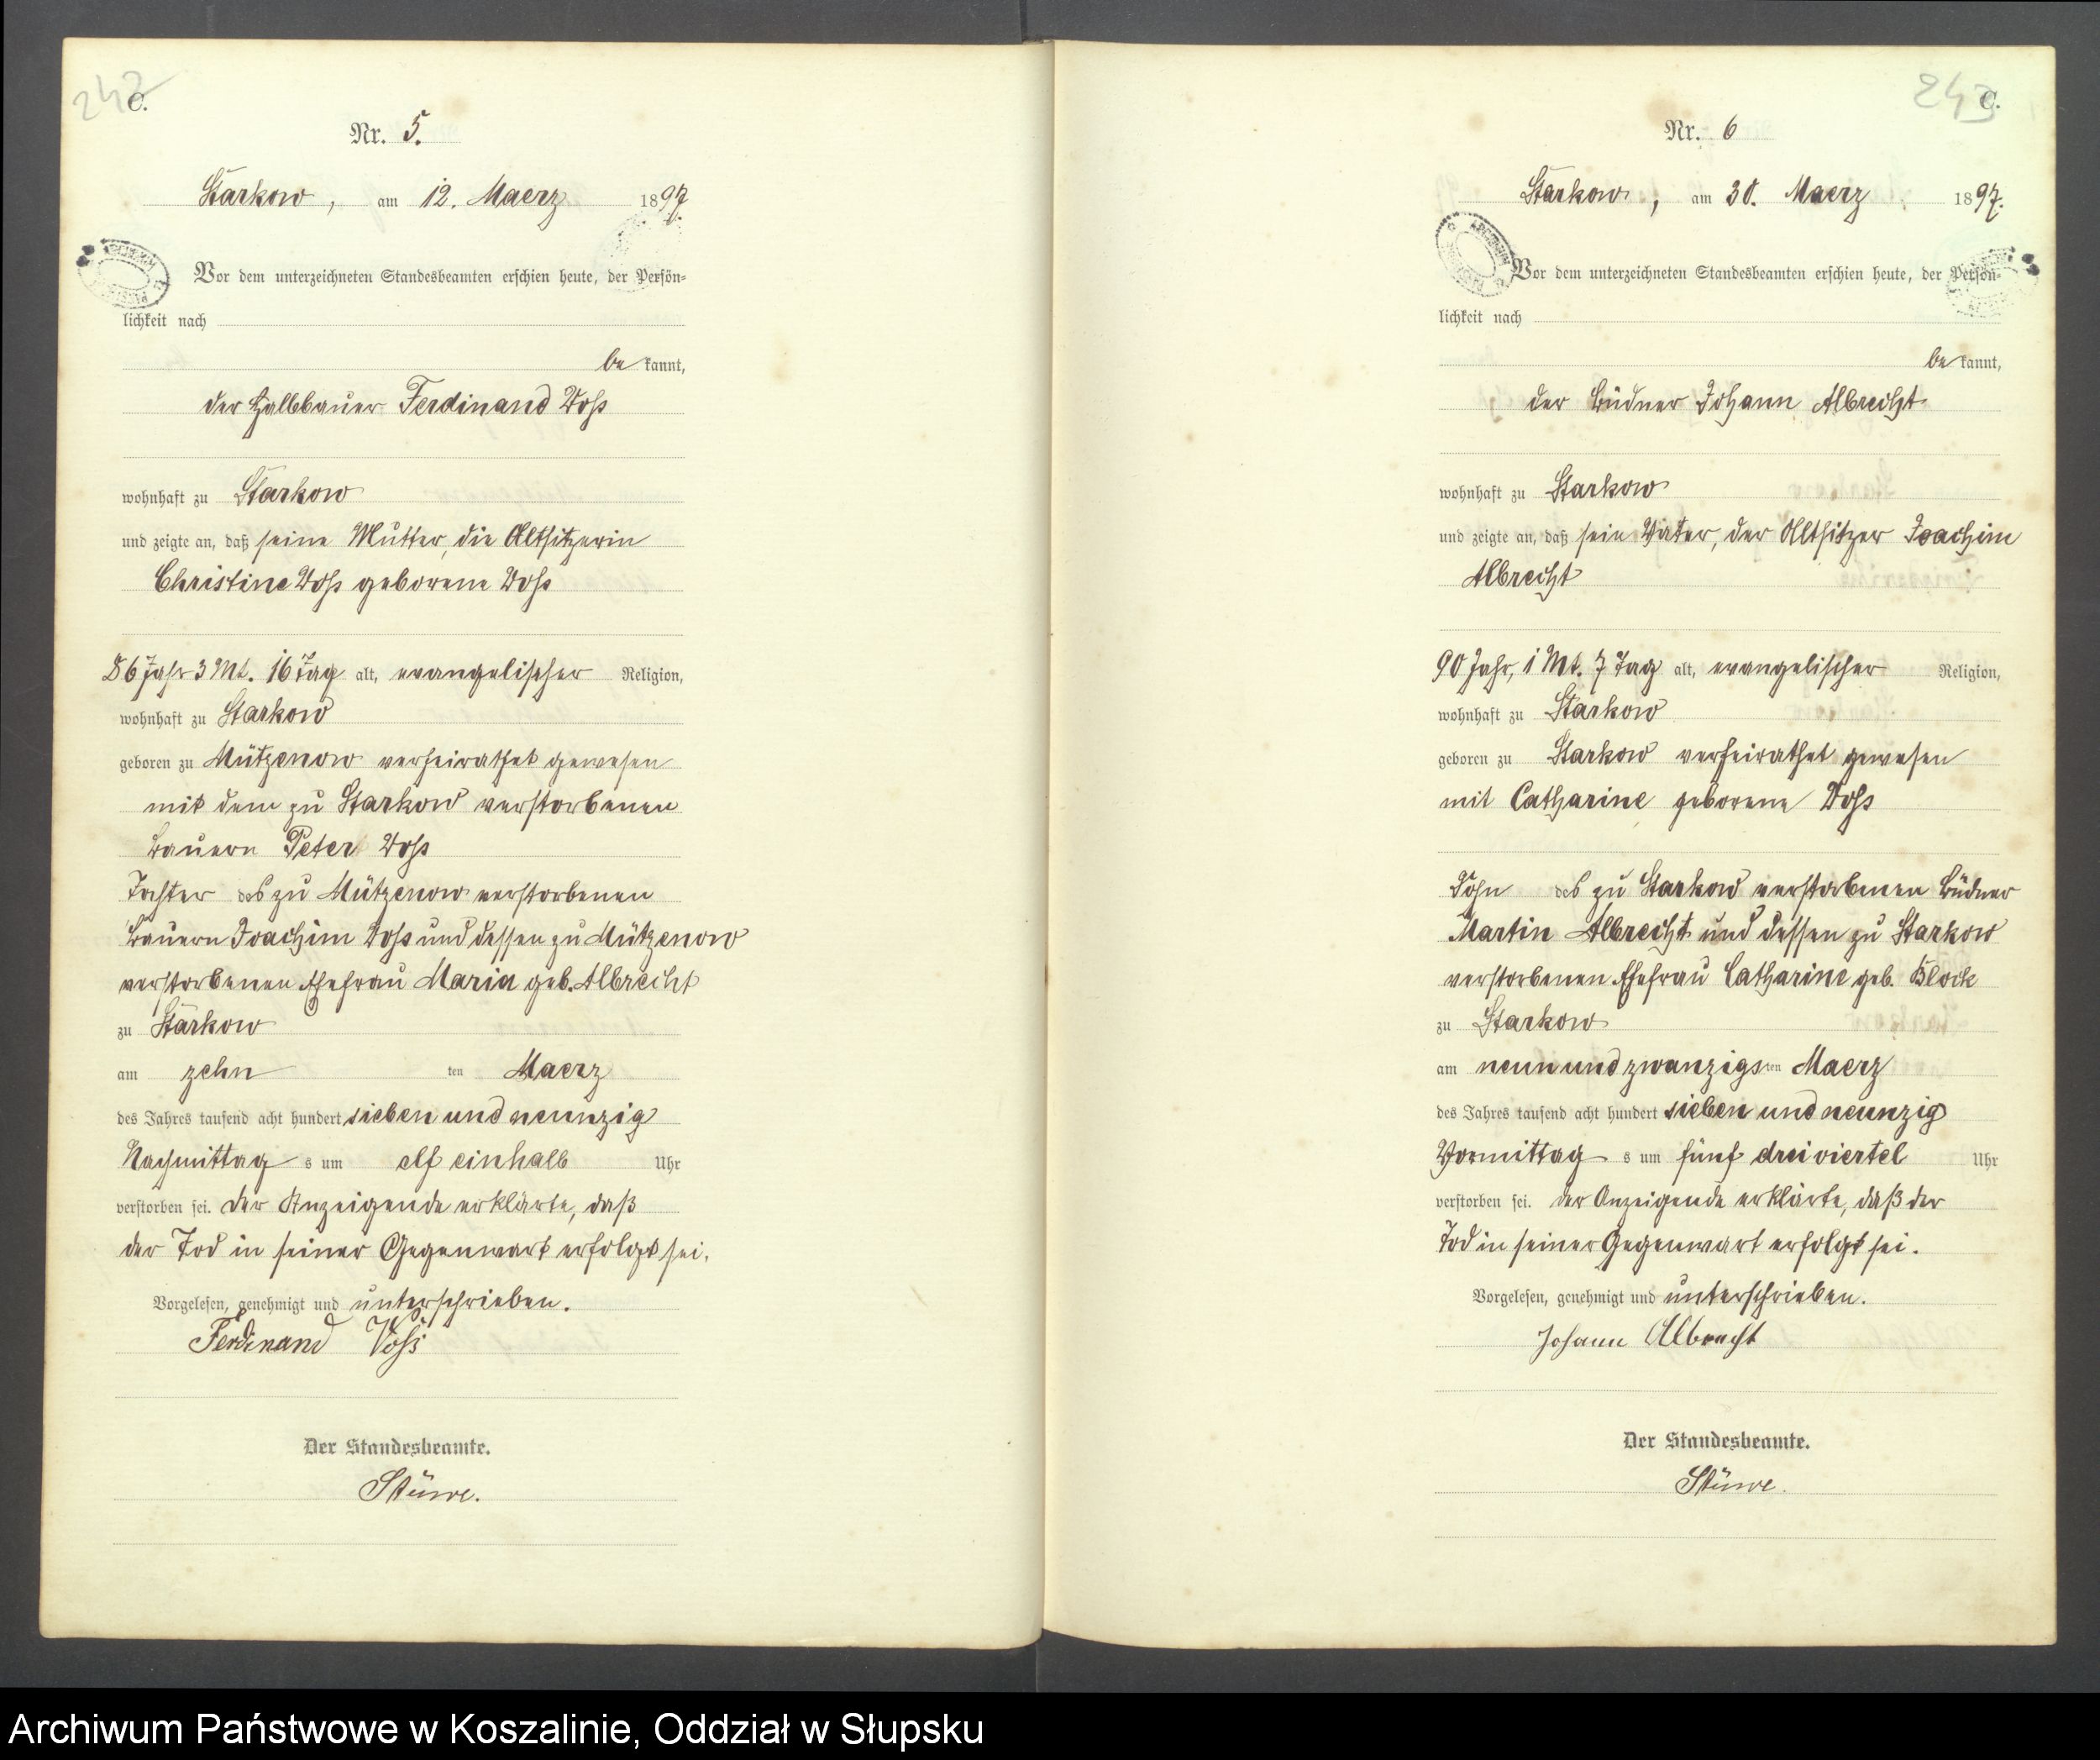 242
C.
Nr. 5.
Starkow, am 12. Maerz 1897
Vor dem unterzeichneten Standesbeamten erschien heute, der Persön-
lichkeit nach
be kannt,
der Halbbauer Ferdinand Voß
wohnhaft zu Starkow
und zeigte an, daß seine Mutter, die Altsitzerin
Christine Voß geborene Voß
86 Jahr 3 Mt. 16 Tag alt, evangelischer Religion,
wohnhaft zu Starkow
geboren zu Mützenow verheirathet gewesen
mit dem zu Starkow verstorbenen
Bauern Peter Voß
Tochter des zu Mützenow verstorbenen
Bauern Joachim Voß und dessen zu Mützenow
verstorbenen Ehefrau Maria geb. Albrecht
zu Starkow
am zehn ten Maerz
des Jahres tausend acht hundert sieben und neunzig
Nachmittag s um elf einhalb Uhr
verstorben sei. Der Anzeigende erklärte, daß
der Tod in seiner Gegenwart erfolgt sei.
Vorgelesen, genehmigt und unterschrieben.
Ferdinand Voß
Der Standesbeamte.
Stüwe.
243
C.
Nr. 6
Starkow, am 30. Maerz 1897.
Vor dem unterzeichneten Standesbeamten erschien heute, der Persön-
lichkeit nach
be kannt,
der Büdner Johann Albrecht
wohnhaft zu Starkow
und zeigte an, daß sein Vater, der Altsitzer Joachim
Albrecht
90 Jahr, 1 Mt. 7 Tag alt, evangelischer Religion,
wohnhaft zu Starkow
geboren zu Starkow verheirathet gewesen
mit Catharine geborene Voß
Sohn des zu Starkow verstorbenen Büdner
Martin Albrecht und dessen zu Starkow
verstorbenen Ehefrau Catharine geb. Klock
zu Starkow
am neunundzwanzigs ten Maerz
des Jahres tausend acht hundert sieben und neunzig
Vormittag s um fünf dreiviertel Uhr
verstorben sei. Der Anzeigende erklärte, daß der
Tod in seiner Gegenwart erfolgt sei.
Vorgelesen, genehmigt und unterschrieben.
Johann Albrecht
Der Standesbeamte.
Stüwe.
Archiwum Państwowe w Koszalinie, Oddział w Słupsku